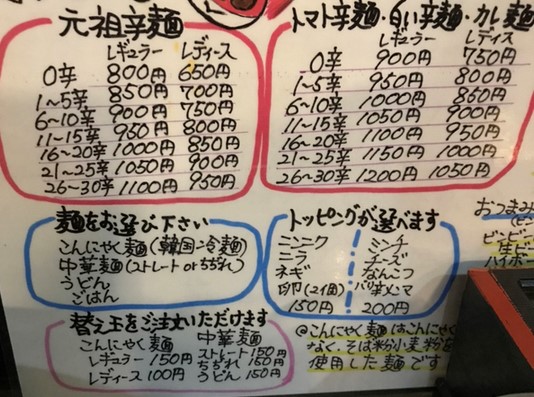 元祖辛麺
レギュラー レディース
0辛 800円 650円
1~5辛 850円 700円
6~10辛 900円 750円
11~15辛 950円 800円
16~20辛 1000円 850円
21~25辛 1050円 900円
26~30辛 1100円 950円
トマト辛麺・白い辛麺・カレー麺
レギュラー レディス
0辛 900円 750円
1~5辛 950円 800円
6~10辛 1000円 850円
11~15辛 1050円 900円
16~20辛 1100円 950円
21~25辛 1150円 1000円
26~30辛 1200円 1050円
麺をお選び下さい
こんにゃく麺(韓国冷麺)
中華麺(ストレート or ちぢれ)
うどん
ごはん
トッピングが選べます
ニンニク
ニラ
ネギ
卵(2個)
150円
ミンチ
チーズ
なんこつ
200円
おつまみ
ビービ
生ビー
ハイボー
替え玉をご注文いただけます
こんにゃく麺
レギュラー 150円
レディース 100円
中華麺
ストレート 150円
ちぢれ 150円
うどん 150円
@こんにゃく麺はこんにゃく
なく、そば粉小麦粉を
使用した麺です